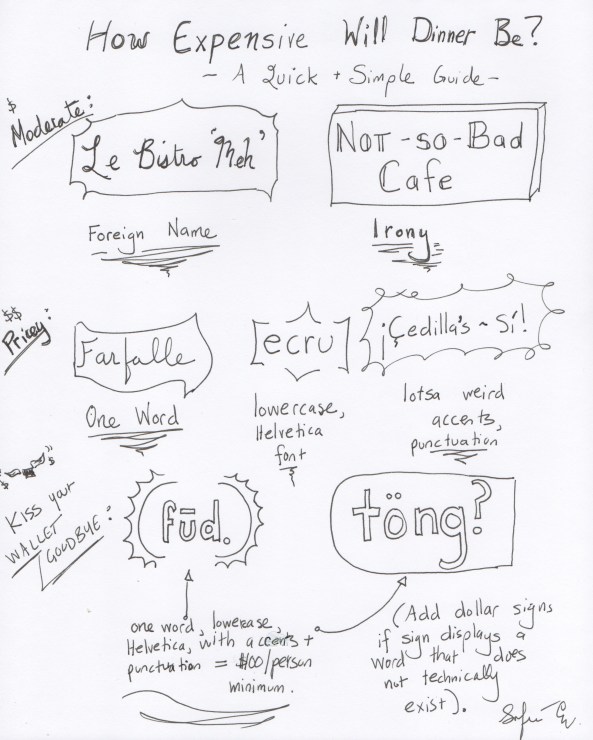 How Expensive Will Dinner Be?
- A Quick + Simple Guide -
$
Moderate:
Le Bistro 'Meh'
Not-so-Bad
Cafe
Foreign Name
Irony
$$
Pricey:
Farfalle
[ecru]
¡Çedilla's ~ Sí!
One Word
lowercase,
Helvetica
font
lotsa weird
accents,
punctuation
Kiss your
WALLET
GOODBYE:
(fūd.)
töng?
one word, lowercase,
Helvetica, with accents +
punctuation = $100/person
minimum.
(Add dollar signs
if sign displays a
word that does
not technically
exist).